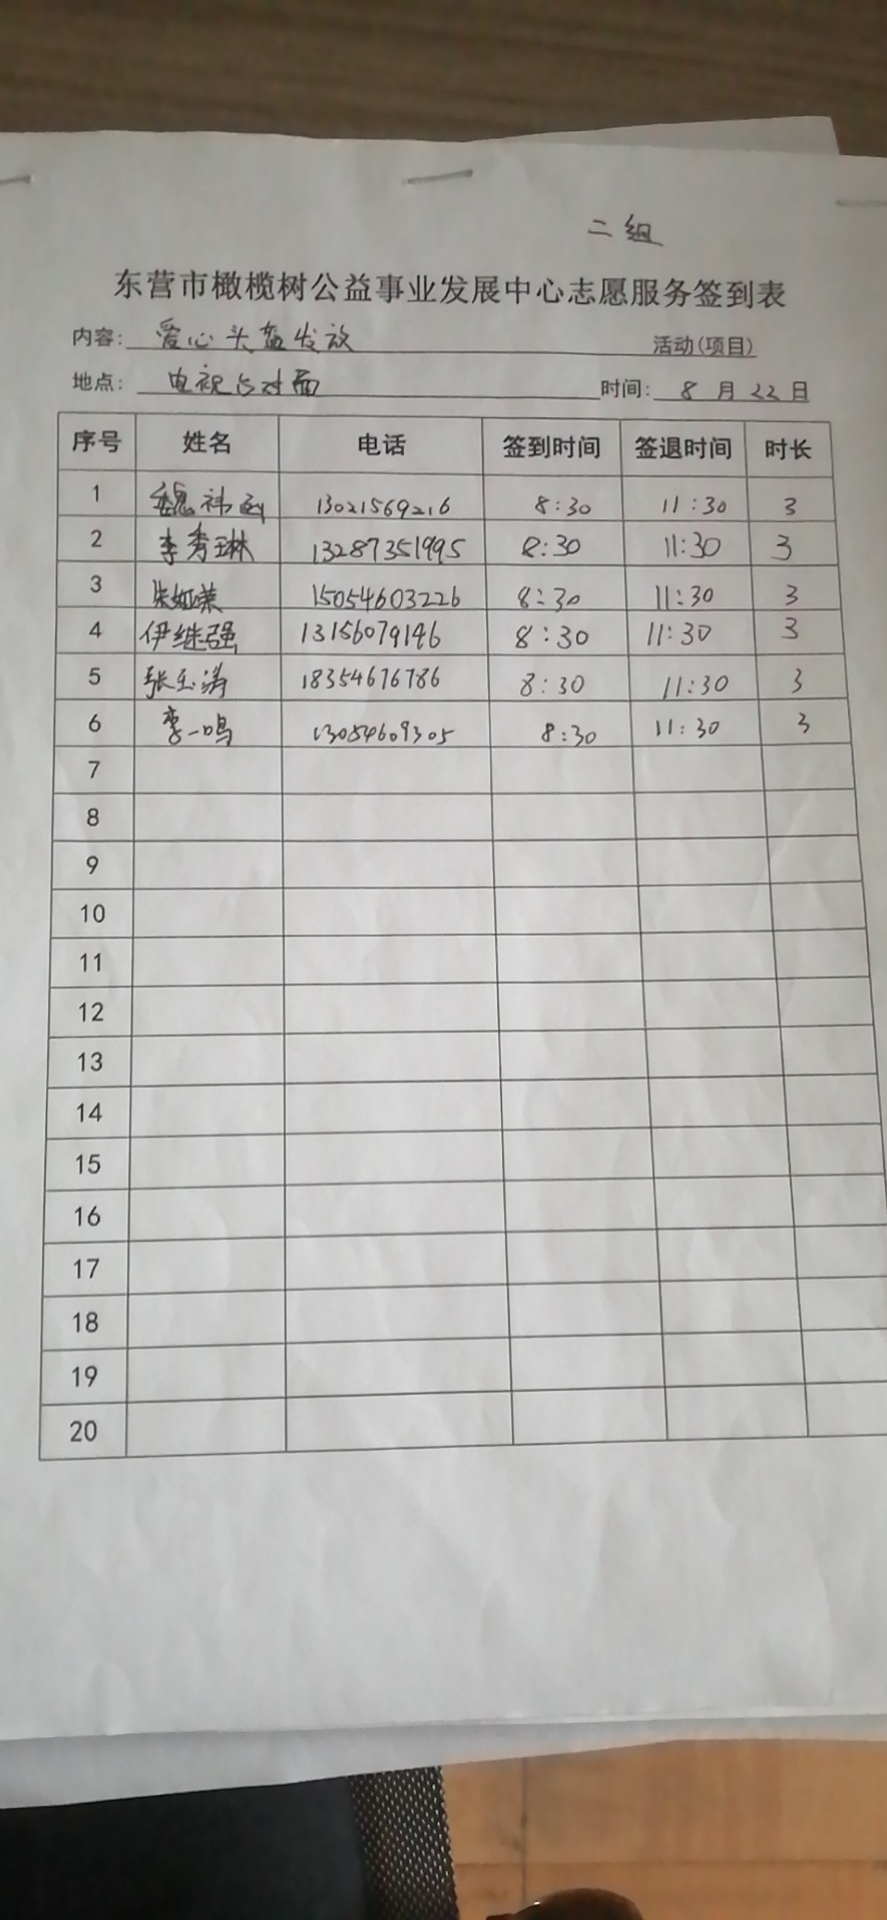 二组
东营市橄榄树公益事业发展中心志愿服务签到表
内容: 爱心头盔发放 活动(项目)
地点: 电视台对面 时间: 8 月 22 日
序号 姓名 电话 签到时间 签退时间 时长
1 魏祎 13021569216 8:30 11:30 3
2 李秀琳 13287351995 8:30 11:30 3
3 15054603226 8:30 11:30 3
4 伊继强 13156079146 8:30 11:30 3
5 张玉涛 18354676786 8:30 11:30 3
6 李一鸣 13054609305 8:30 11:30 3
7
8
9
10
11
12
13
14
15
16
17
18
19
20